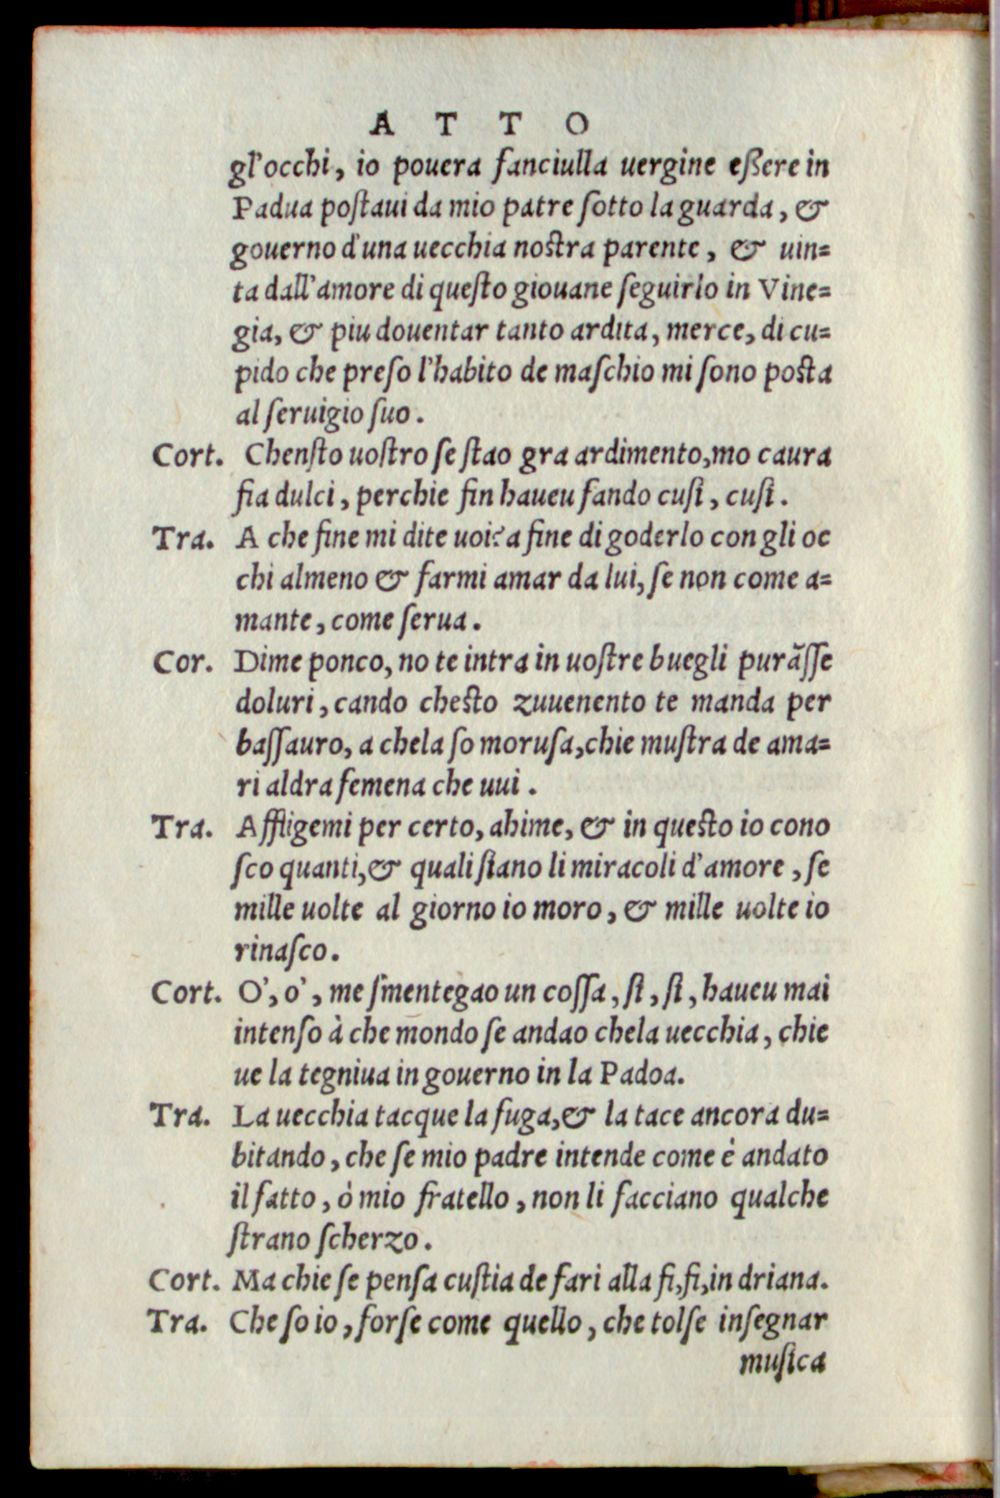 ATTO
gl'occhi, io pouera fanciulla uergine eßere in
Padua postaui da mio patre sotto la guarda, &
gouerno d'una uecchia nostra parente, & uin=
ta dall'amore di questo giouane seguirlo in Vine=
gia, & piu douentar tanto ardita, merce, di cu=
pido che preso l'habito de maschio mi sono posta
al seruigio suo.
Cort. Chensto uostro se stao gra ardimento, mo caura
fia dulci, perchie fin haueu fando cusi, cusi.
Tra. A che fine mi dite uoi? a fine di goderlo con gli oc
chi almeno & farmi amar da lui, se non come a=
mante, come serua.
Cor. Dime ponco, no te intra in uostre buegli purãsse
doluri, cando chesto zuuenento te manda per
bassauro, a chela so morusa, chie mustra de ama=
ri aldra femena che uui.
Tra. Affligemi per certo, ahime, & in questo io cono
sco quanti, & quali siano li miracoli d'amore, se
mille uolte al giorno io moro, & mille uolte io
rinasco.
Cort. O', o', me smentegao un cossa, si, si, haueu mai
intenso à che mondo se andao chela uecchia, chie
ue la tegniua in gouerno in la Padoa.
Tra. La uecchia tacque la fuga, & la tace ancora du=
bitando, che se mio padre intende come è andato
il fatto, ò mio fratello, non li facciano qualche
strano scherzo.
Cort. Ma chie se pensa custia de fari alla fi, fi, in driana.
Tra. Che so io, forse come quello, che tolse insegnar
musica